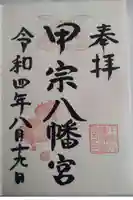 奉拝
甲宗八幡宮
令和四年八月十九日